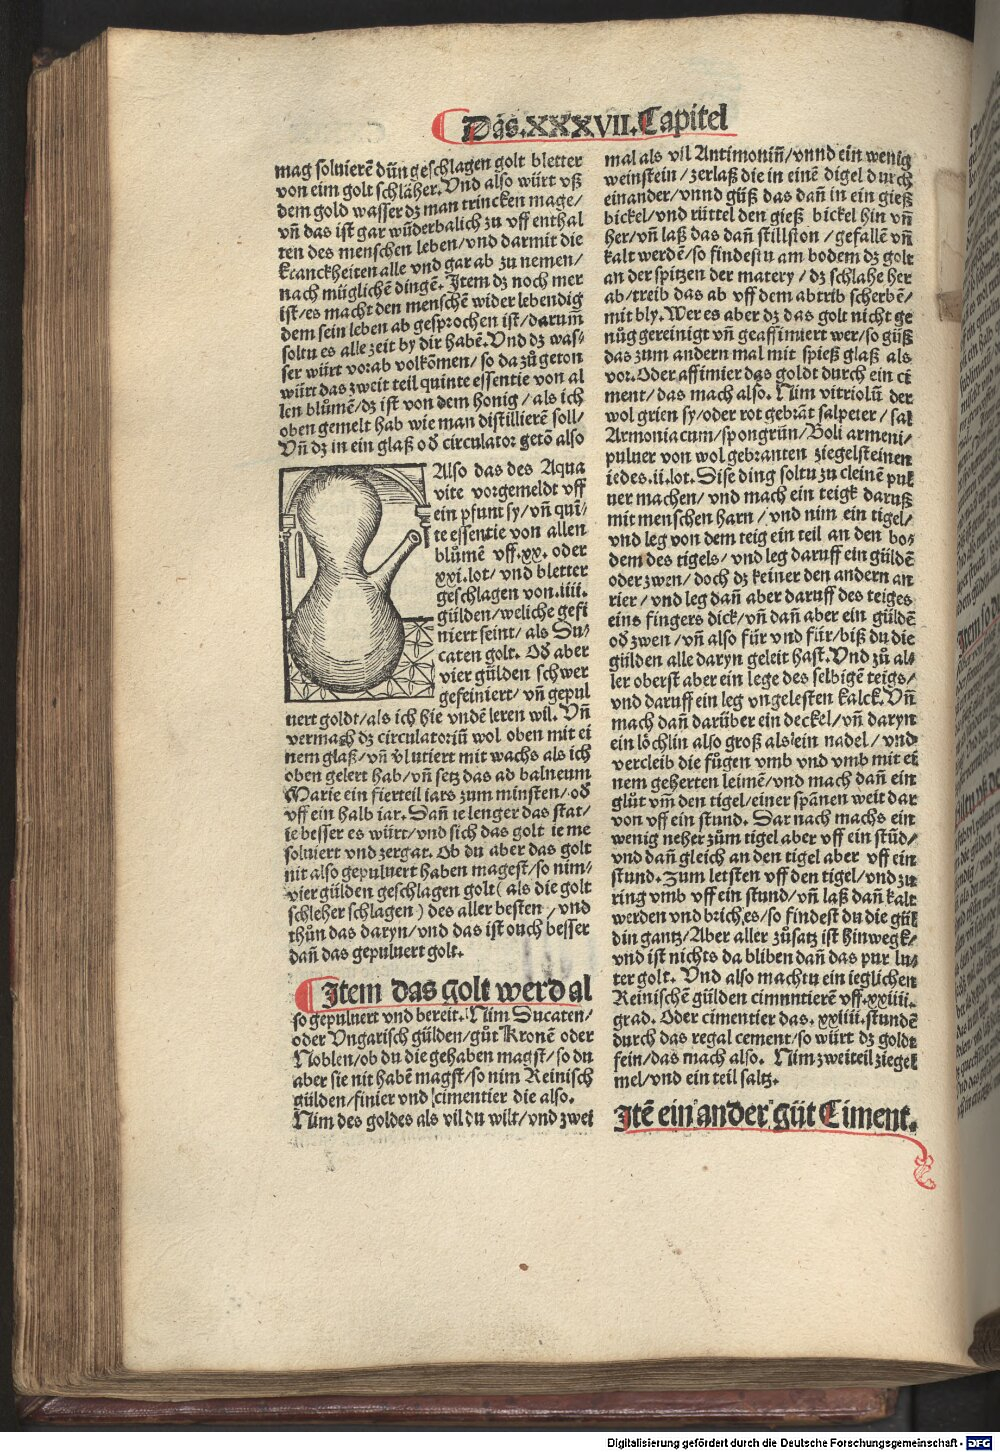 Das.XXXVII.Capitel
mag soluierē dün geschlagen golt bletter
von eim golt schlaher. Vnd also würt vß
dem gold wasser dz man trincken mage/
vñ das ist gar wūderbalich zu vff enthal
ten des menschen leben/vnd darmit die
kranckheiten alle vnd gar ab zu nemen/
nach müglichē dingē. Item dz noch mer
ist/es macht den menschē wider lebendig
dem sein leben ab gesprochen ist/darum̄
soltu es alle zeit by dir habē. Vnd dz was-
ser würt vorab volkōmen/so da zů geton
würt das zweit teil quinte essentie von al
len blůmē/dz ist von dem honig/als ich
oben gemelt hab wie man distillierē soll/
Vñ dz in ein glaß oď circulator getō also
Also das des Aqua
vite vorgemeldt vff
ein pfunt sy/vñ quī-
te essentie von allen
blůmē vff.xx. oder
xxi.lot/vnd bletter
geschlagen von.iiii.
gülden/weliche gefi
niert seint/als Du-
caten golt. Oď aber
vier gülden schwer
gefeiniert/vñ gepul
uert goldt/als ich hie vndē leren wil. Vñ
vermach dz circulatoriū wol oben mit ei
nem glaß/vñ v̌lutiert mit wachs als ich
oben gelert hab/vñ setz das ad balneum
Marie ein fierteil iars zum minsten/oď
vff ein halb iar. Dañ ie lenger das stat/
ie besser es würt/vnd sich das golt ie me
soluiert vnd zergat. Ob du aber das golt
nit also gepuluert haben magest/so nim-
vier gülden geschlagen golt(als die golt
schleher schlagen) des aller besten/vnd
thůn das daryn/vnd das ist ouch besser
dañ das gepuluert golt.
Item das golt werd al
so gepuluert vnd bereit. Nim Ducaten/
oder Vngarisch gülden/gůt Kronē oder
Noblen/ob du die gehaben magst/so du
aber sie nit habē magst/so nim Reinisch
gülden/finier vnd cimentier die also.
Nim des goldes als vil du wilt/vnd zwei
mal als vil Antimoniū/vnnd ein wenig
weinstein/zerlaß die in einē digel durch
einander/vnnd güß das dañ in ein gieß
bickel/vnd rüttel den gieß bickel hin vñ
her/vñ laß das dañ still ston/gefallē vñ
kalt werdē/so findestu am bodem dz golt
an der spitzen der matery/dz schlahe her
ab/treib das ab vff dem abtrib scherbē/
mit bly. Wer es aber dz das golt nicht ge
nůg gereinigt vñ geaffimiert wer/so güß
das zum andern mal mit spieß glaß als
vor. Oder affimier das goldt durch ein ci
ment/das mach also. Nim vitriolū der
wol grien sy/oder rot gebrāt salpeter/sal
Armoniacum/spongrün/Boli armeni/
puluer von wol gebranten ziegelsteinen
iedes.ii.lot. Dise ding soltu zu cleinē pul
uer machen/vnd mach ein teigk daruß
mit menschen harn/vnd nim ein tigel/
vnd leg von dem teig ein teil an den bo-
dem des tigels/vnd leg daruff ein güldē
oder zwen/doch dz keiner den andern an
rier/vnd leg dañ aber daruff des teiges
eins fingers dick/vñ dañ aber ein güldē
oď zwen/vñ also für vnd für/biß du die
gülden alle daryn geleit hast. Vnd zů al-
ler oberst aber ein lege des selbigē teigs/
vnd daruff ein leg vngelesten kalck. Vñ
mach dañ darüber ein deckel/vñ daryn
ein löchlin also groß als ein nadel/vnd
vercleib die fůgen vmb vnd vmb mit ei
nem geherten leimē/vnd mach dañ ein
glůt vm̄ den tigel/einer spānen weit dar
von vff ein stund. Dar nach machs ein
wenig neher zům tigel aber vff ein stūd/
vnd dañ gleich an den tigel aber vff ein
stund. Zum letsten vff den tigel/vnd zu
ring vmb vff ein stund/vñ laß dañ kalt
werden vnd brich es/so findest du die gül
din gantz/Aber aller zůsatz ist hinwegk/
vnd ist nichts da bliben dañ das pur lu-
ter golt. Vnd also machtu ein ieglichen
Reinischē gülden cimmtierē vff.xxiiii.
grad. Oder cimentier das.xxiiii.stundē
durch das regal cement/so würt dz goldt
fein/das mach also. Nim zwei teil ziegel
mel/vnd ein teil saltz.
Itē ein ander gůt Ciment.
Digitalisierung gefördert durch die Deutsche Forschungsgemeinschaft - DFG